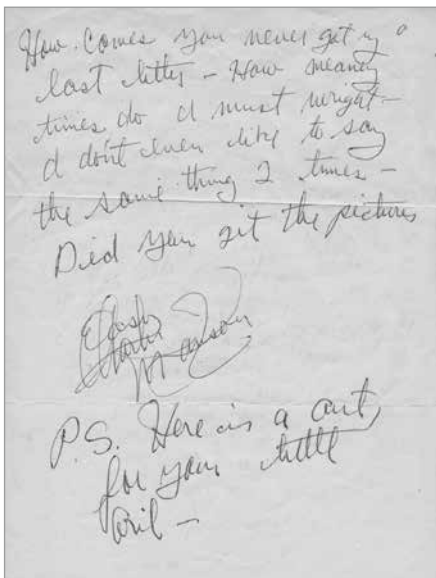 How. Comes you never get my
last letter – How meaney
times do I must wright –
I don't even like to say
the same thing 2 times –
Died you git the pictures
Manson
P.S. Here is a
for your little